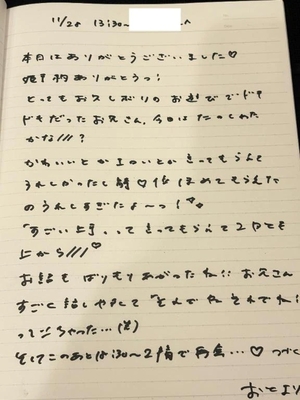 11/28 13:30〜 へ
本日はありがとうございました♡
ありがとうっ!
とってもお久しぶりのお遊びでドキ
ドキだったお兄さん、今日はたのしめた
かな///?
かわいいとかエロいとかきってもらえて
うれしかったし ♡ ほめてもらえた
のうれしすぎたよ〜っ!
「すごい上手」って言ってもらえて2回とも
上から///♡
お話もばりもりあがったね!! お兄さん
すごく話しやすくて「そんでね それでね」
ってなっちゃった...(笑)
そしてこのあと1:30〜2 で再会...♡ つづく